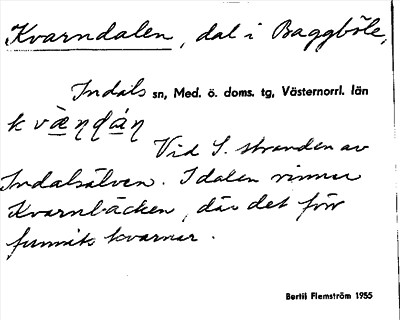 Kvarndalen, dal i Baggböle,
Indals sn, Med. ö. doms. tg, Västernorrl. län
kvæ̀ṇḍáṇ
Vid S. stranden av
Indalsälven. I dalen rinner
Kvarnbäcken, där det förr
funnits kvarnar.
Bertil Flemström 1955